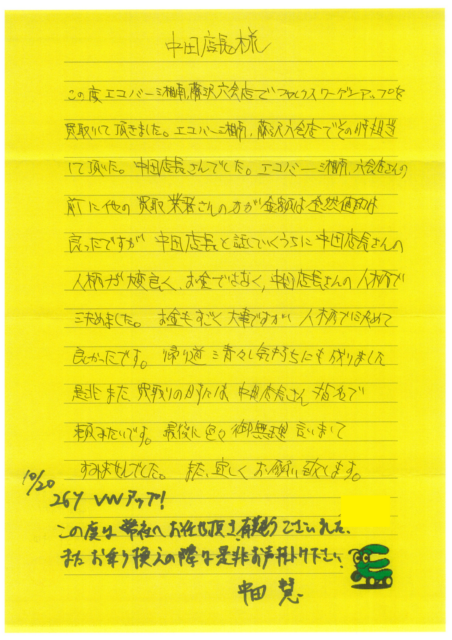 中田店長様
この度エコバー三湘南、藤沢六会店でフォルクスワーゲンアップを
買取りして頂きました。エコバー三湘南、藤沢六会店でその時担当
して頂いた。中田店長さんでした。エコバー三湘南、六会店さんの
前に他の買取業者さんの方が金額は全然値段は
良ったですが 中田店長と話していくうちに中田店長さんの
人柄が大変良く、お金ではなく、中田店長さんの人柄で
決めました。お金もすごく大事ですが 人柄で決めて
良かったです。帰り道 清々し気持ちにも成りました
是非また 買取りのさいは 中田店長さん 指名で
頼みたいです。最後に色々御無理言いまして
すみませんでした。また、宜しくお願い致します。
10/20
26Y VWアップ!
この度は弊社へお任せ頂き有難うございました。
またお乗り換えの際は是非お声掛け下さい。
中田 慧